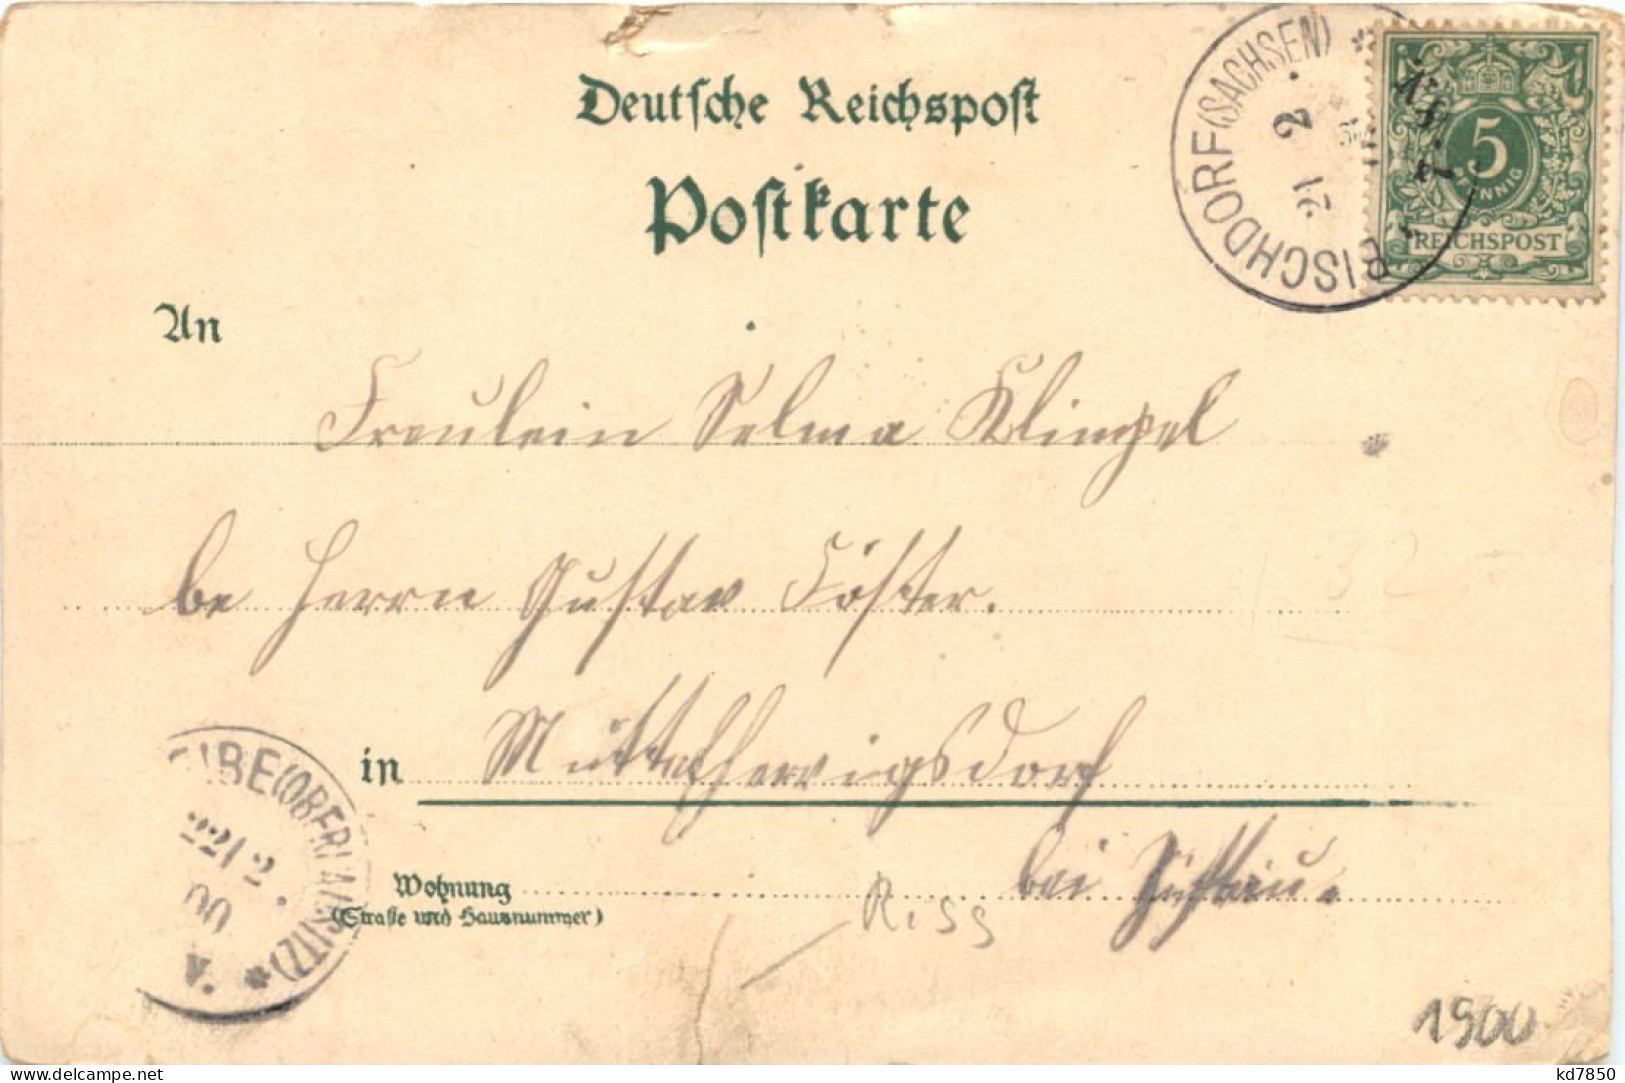 Deutſche Reichspoſt
Poſtkarte
BISCHDORF (SACHSEN) *
21 2
5
PFENNIG
REICHSPOST
An
Fräulein Selma Klimpel
be Herrn Gustav Förster.
in Mittelherwigsdorf
bei Zittau.
Wohnung
(Straße und Hausnummer)
EIBE (OBERLAUSITZ) *
22/2
00
V.
Riss
32
1900
kd7850